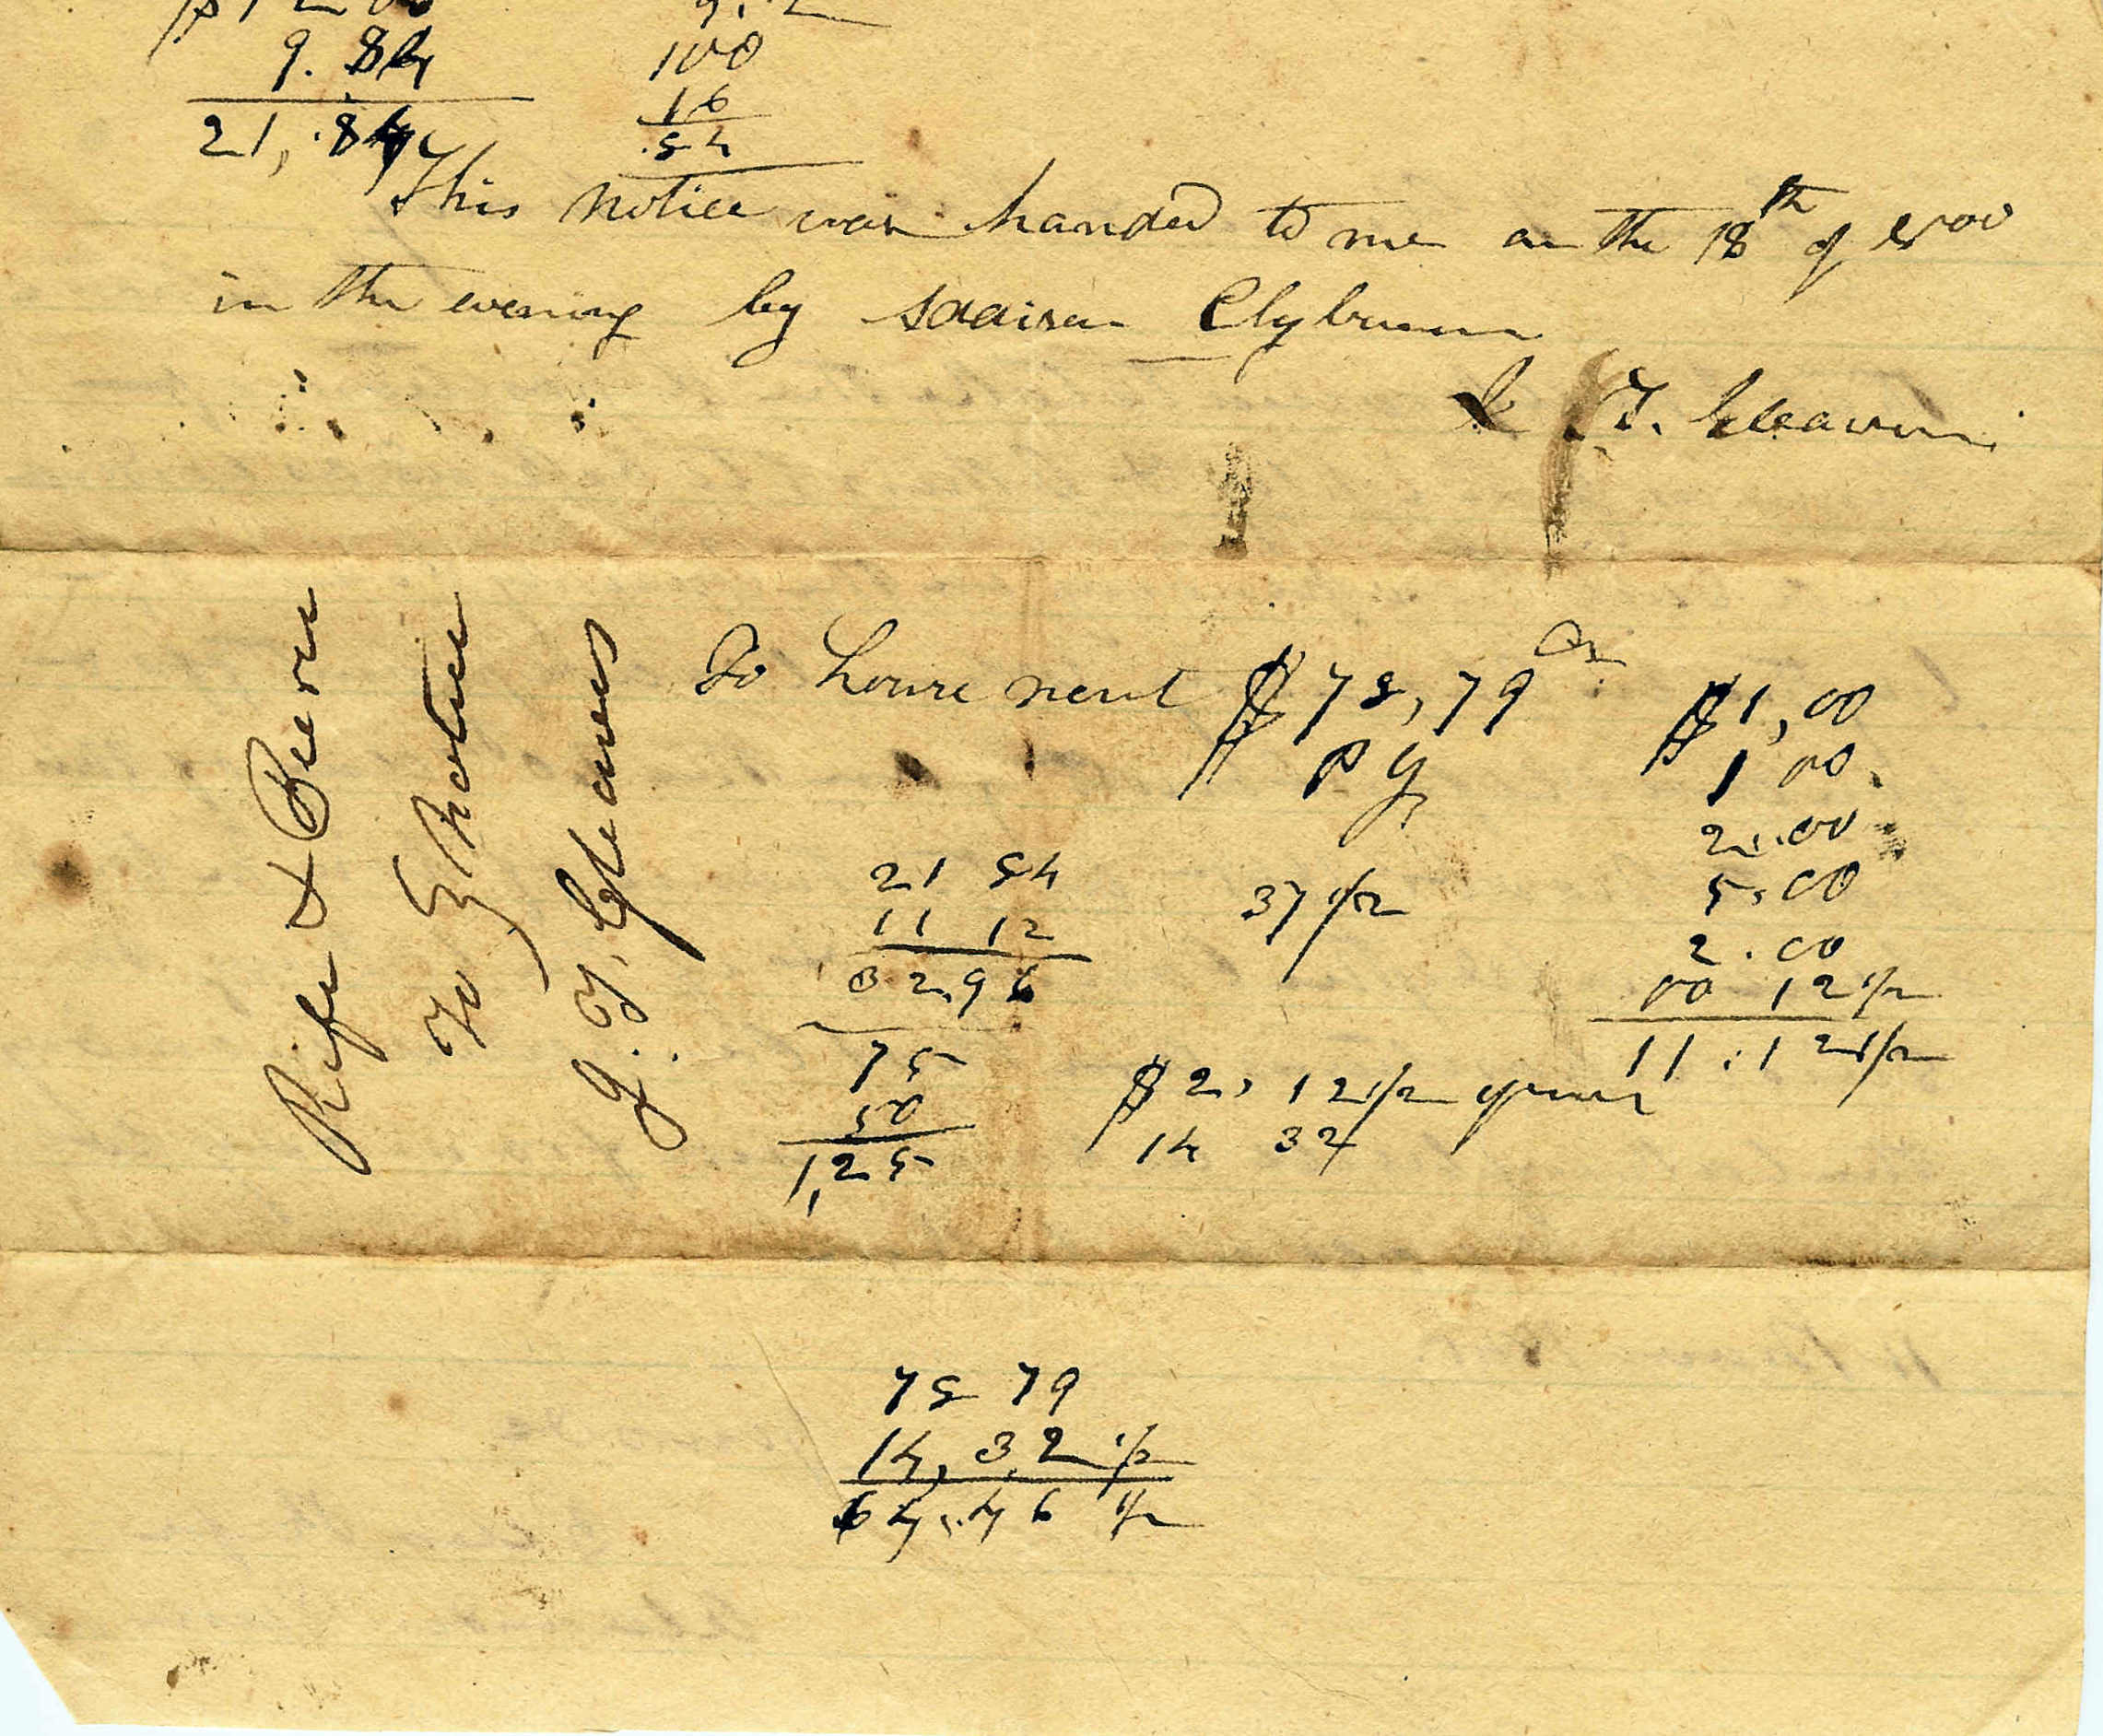 9. 84
21, .84
100
16
.84
This notice was handed to me on the 18th of Nov
in the evening by Addison Clyburn
J. T. Gleaves
Rife & Beern
To } Notice
J. T. Gleaves
To house rent $78,79
$1,00
1 00
2..00
5.00
2.00
00 12 1/2
11.12 1/2
21 84
11 12
32.96
37 1/2
75
50
1,25
$2, 12 1/2
14 32
78 79
14,32 1/2
64.46 1/2